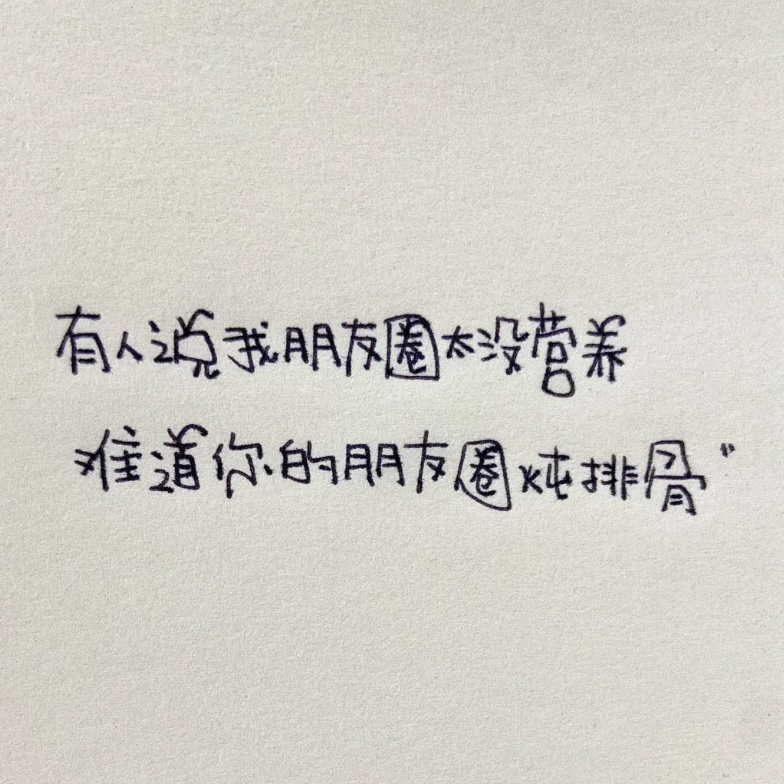 有人说我朋友圈太没营养
难道你的朋友圈炖排骨”